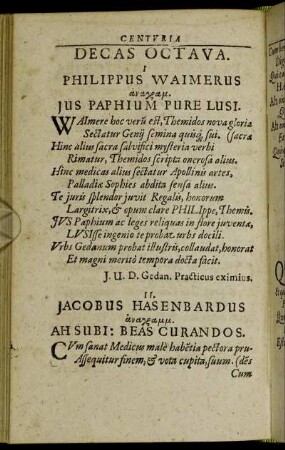 CENTURIA
DECAS OCTAVA.
I
PHILIPPUS WAIMERUS
ἀναγραμ.
JUS PAPHIUM PURE LUSI.
WAImere hoc verũ est, Themidos nova gloria (sacræ
Sectatur Genij semina quisq; sui.
Hinc alius sacra salvifici mysteria verbi
Rimatur, Themidos scripta onerosa alius.
Hinc medicas alius sectatur Apollinis artes,
Palladiæ Sophies abdita sensa alius.
Te juris splendor juvit Regalis, honorum
Largitrix, & opum clare PHILIppe, Themis.
JVS Paphium ac leges reliquas in flore juventæ,
LVSIsse ingenio te probat urbs docili.
Vrbs Gedanum probat illustris, collaudat, honorat
Et magni meritò tempora docta facit.
J. U. D. Gedan. Practicus eximius.
II.
JACOBUS HASENBARDUS
ἀναγραμμ.
AH SUBI: BEAS CURANDOS.
CVm sanat Medicus malè habẽtia pectora pru-
Assequitur finem, & vota cupita, suum. (dẽs
Cum